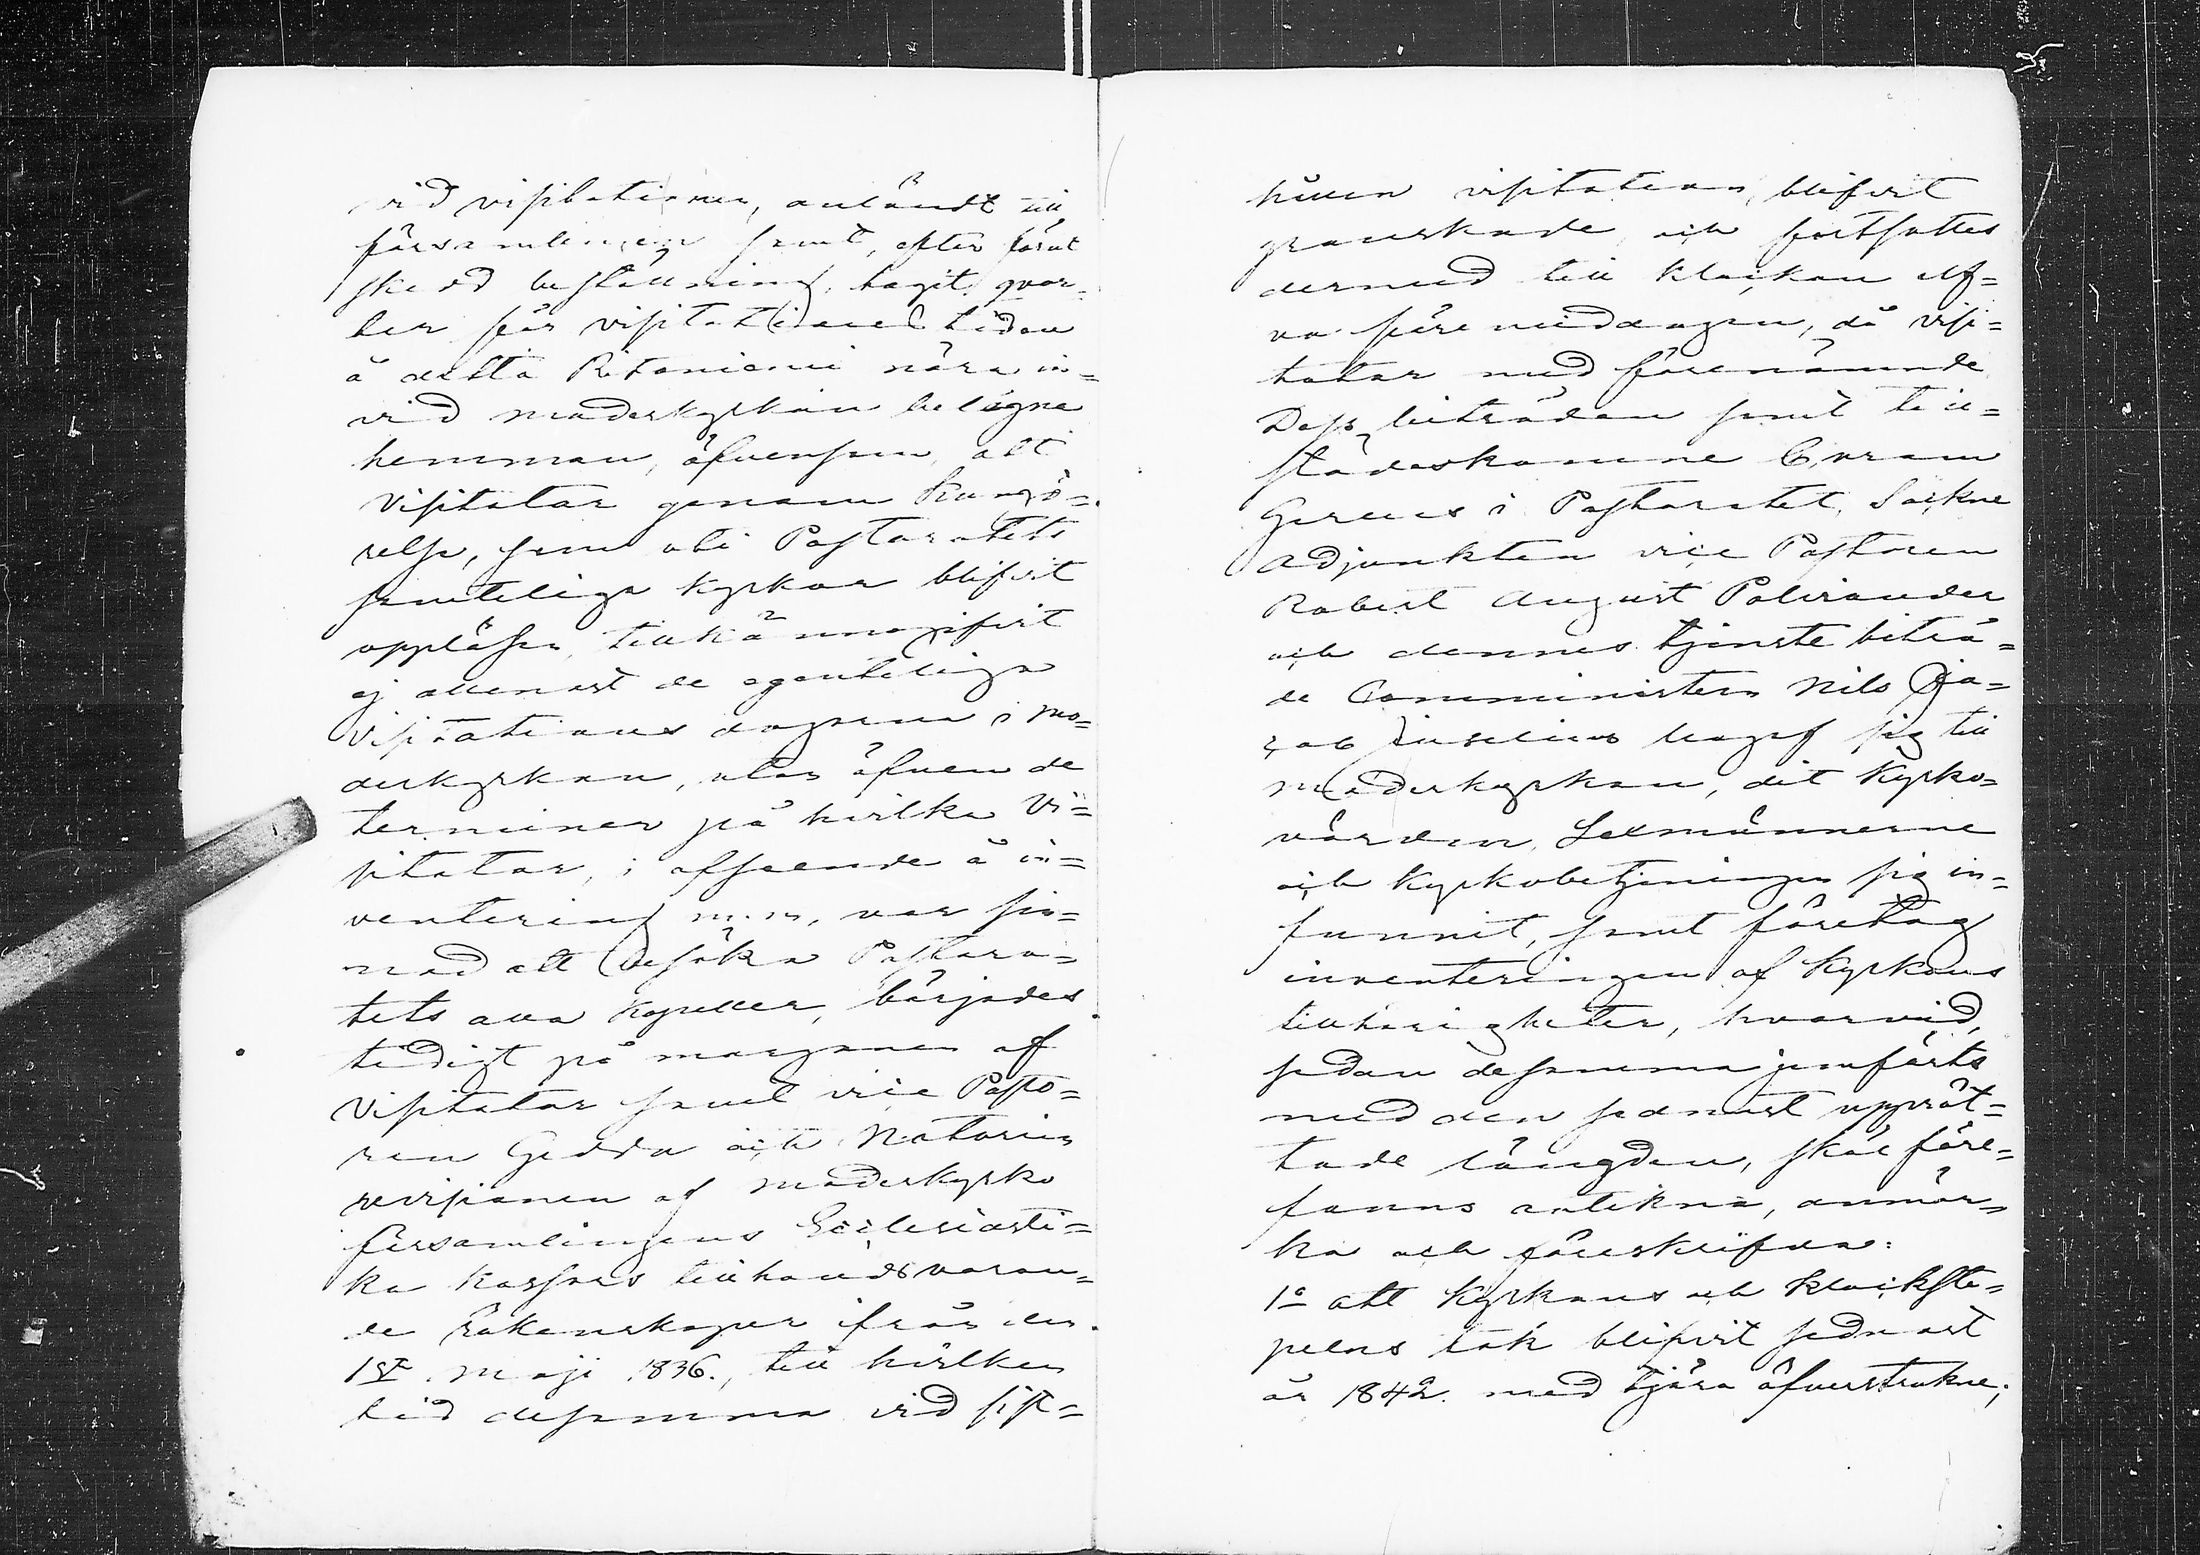 vid visitationen, anländt till
församlingen samt, efter förut
skedd beställning, tagit qvar-
ter för visitationstiden
å detta Ritoniemi nära in-
vid moderkyrkan belägne
hemman, äfvensom, att
Visitator genom kungö-
relse, som uti Pastoratets
samteliga kyrkor blifvit
uppläsen, tillkännagifvit
ej allenast de egenteliga
Visitations dagarne i mo-
derkyrkan, utan äfven de
terminer på hvilka Vi-
sitator, i afseende å in-
ventering m.m., var sin-
nad att besöka Pastora-
tets alla Kapeller, börjades
tidigt på morgonen af
Visitator samt vice Pasto-
ren Gedda och Notarien
revisionen af moderkyrko
församlingens Ecclesiasti-
ka kassors tillhandsvaran-
de räkenskaper ifrån den
1sta Maji 1836., till hvilken
tid desamma vid sist-
hållen visitation, blifvit
granskade, och fortsattes
dermed till klockan elf-
va förmiddagen, då visi-
tator med förenämnde
Dess biträden samt till-
städeskomne Coram
Gerens i Pastoratet, Sockne
adjunkten vice Pastoren
Robert August Polviander
och dennes tjenste biträ-
de Comministern Nils
begaf sig till
moderkyrkan, dit Kyrko-
värden, Sexmännerne
och Kyrkobetjeningen sig in-
funnit, samt företog
inventeringen af Kyrkans
tillhörigheter, hvarvid,
sedan desamma jemförts
med den sednast upprät-
tade längden, skäl före-
fanns anteknа, anmär-
ka och föreskrifva:
1o att Kyrkans och klockste-
pelns tak blifvit sednast
år 1842. med tjära öfverstrukne;